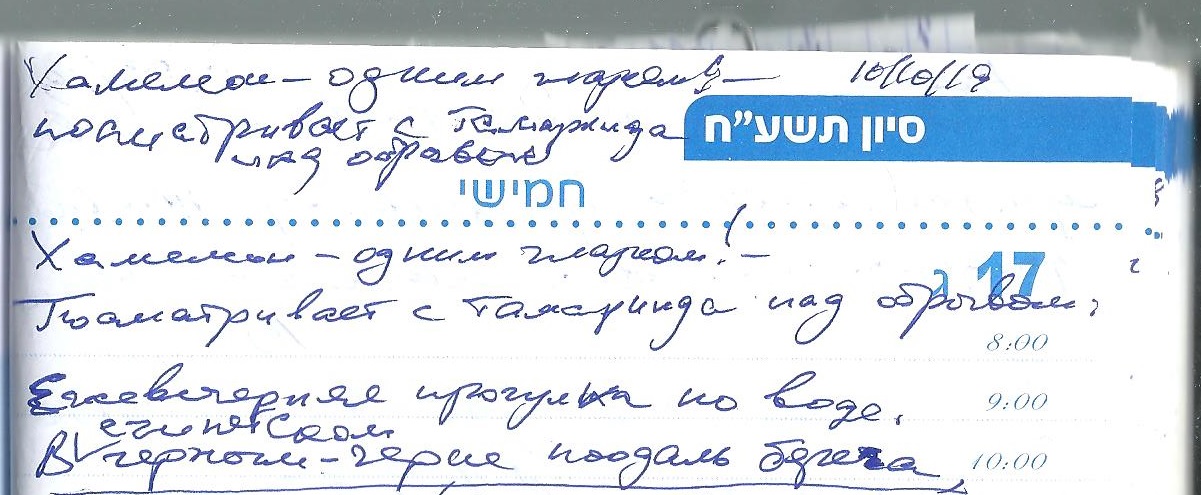 Хамелеон – одним глазком! – 10/10/19
посматривает с Тамаринда
над обрывом
סיון תשע״ח
חמישי
Хамелеон – одним глазком! –
17 ג
Посматривает с Тамаринда над обрывом.
8:00
Ежевечерняя прогулка по воде, 9:00
египетском
В черном-черне поодаль берега 10:00